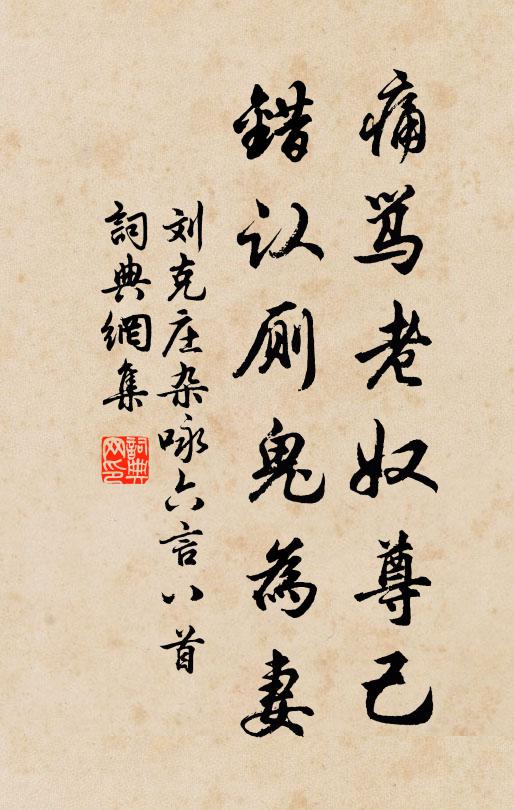 痛骂老奴尊己
錯认厕鬼為妻
刘克庄杂咏六言八首
詞典網集
詞典网印